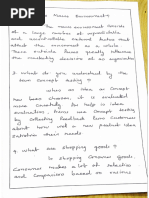 Macro Environment
The macro environment consists
of a large number of uncontrollable
external factors that
affect the movement as a whole
These outside forces greatly influence
the marketing decision of an organization
? what do you understand by the
term concept testing ?
when an idea or concept
has been chosen, it is evaluated
more carefully. To help in idea
evaluation, firms use concept testing
by collecting feedback from customers
about how well a new product idea
satisfies their needs
4 what are shopping goods ?
In shopping consumer goods
consumer makes a lot of
and comparisons based on various